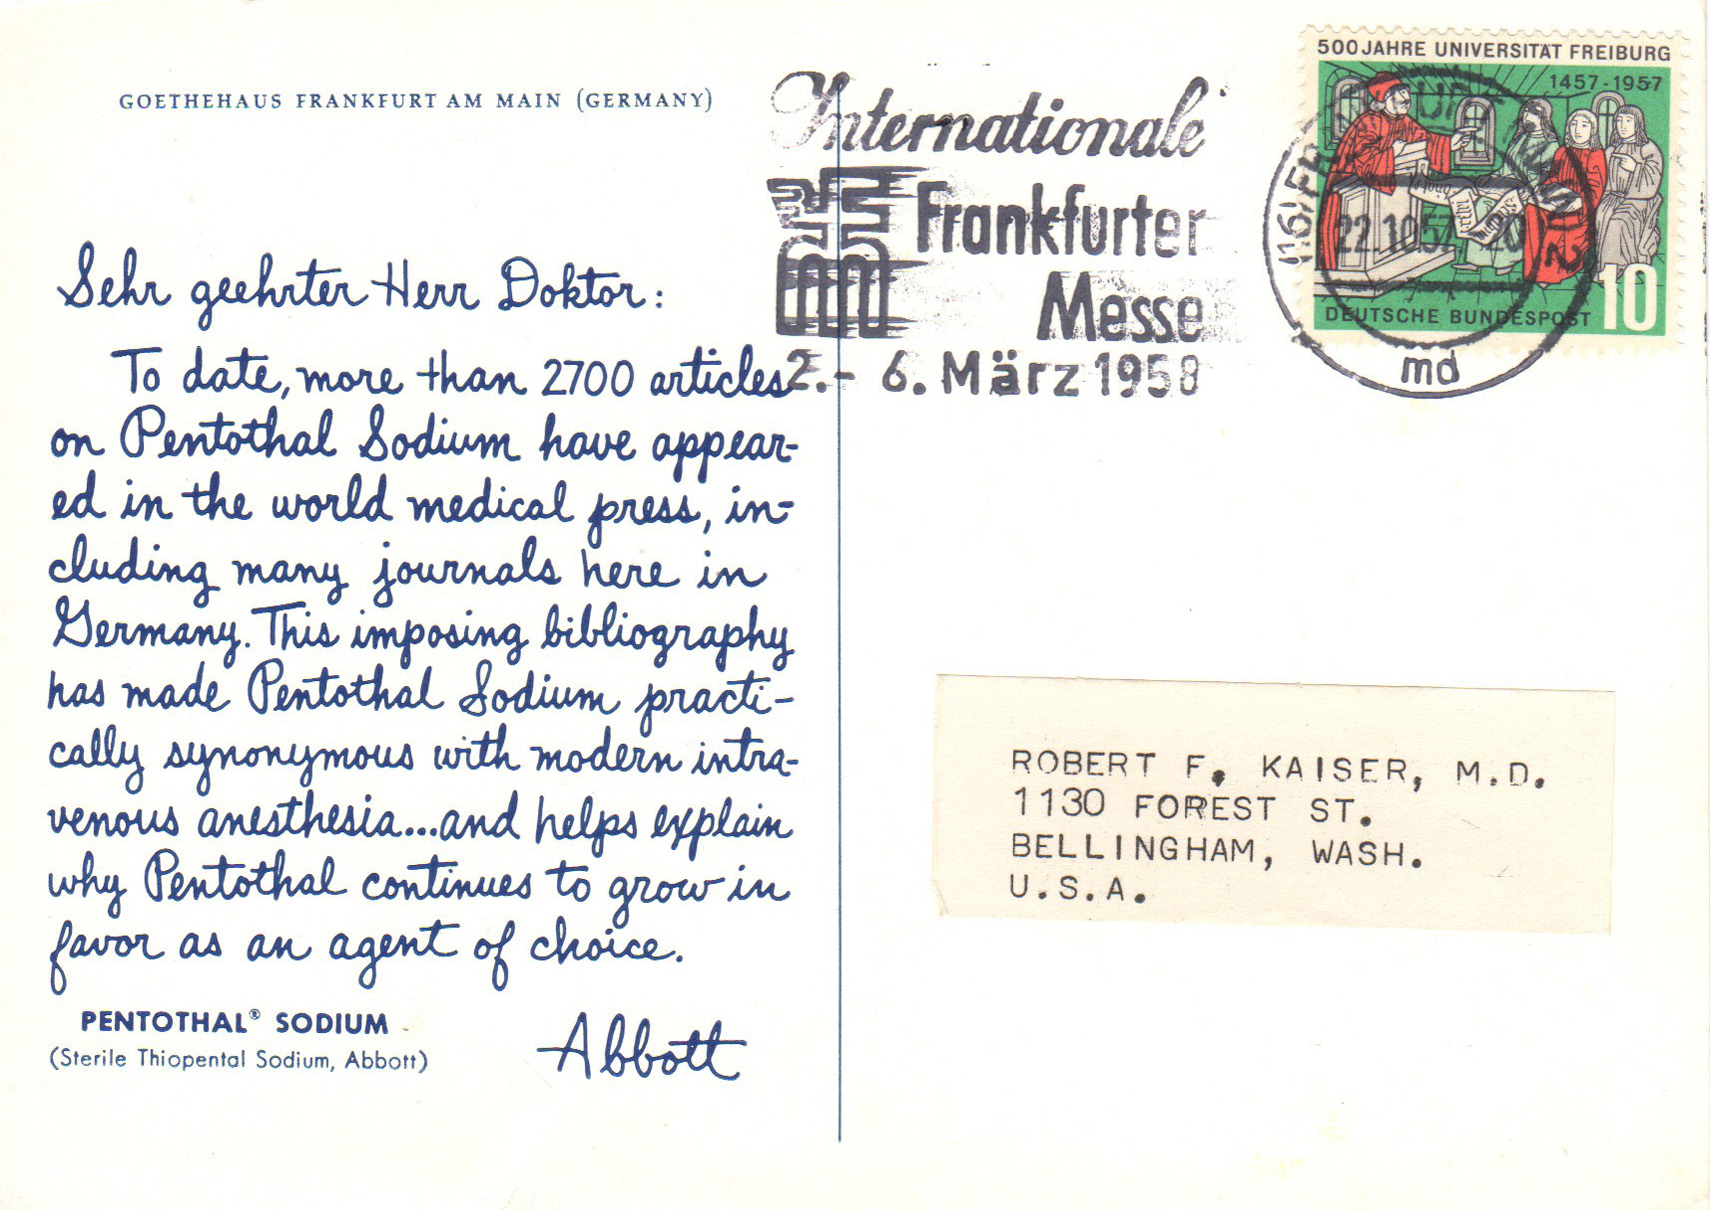 GOETHEHAUS FRANKFURT AM MAIN (GERMANY)
Sehr geehrter Herr Doktor:
To date, more than 2700 articles
on Pentothal Sodium have appear-
ed in the world medical press, in-
cluding many journals here in
Germany. This imposing bibliography
has made Pentothal Sodium practi-
cally synonymous with modern intra-
venous anesthesia...and helps explain
why Pentothal continues to grow in
favor as an agent of choice.
Abbott
PENTOTHAL® SODIUM
(Sterile Thiopental Sodium, Abbott)
Internationale
Frankfurter
Messe
2.- 6. März 1958
500 JAHRE UNIVERSITÄT FREIBURG
1457-1957
DEUTSCHE BUNDESPOST
10
22.10.57
md
ROBERT F. KAISER, M.D.
1130 FOREST ST.
BELLINGHAM, WASH.
U.S.A.